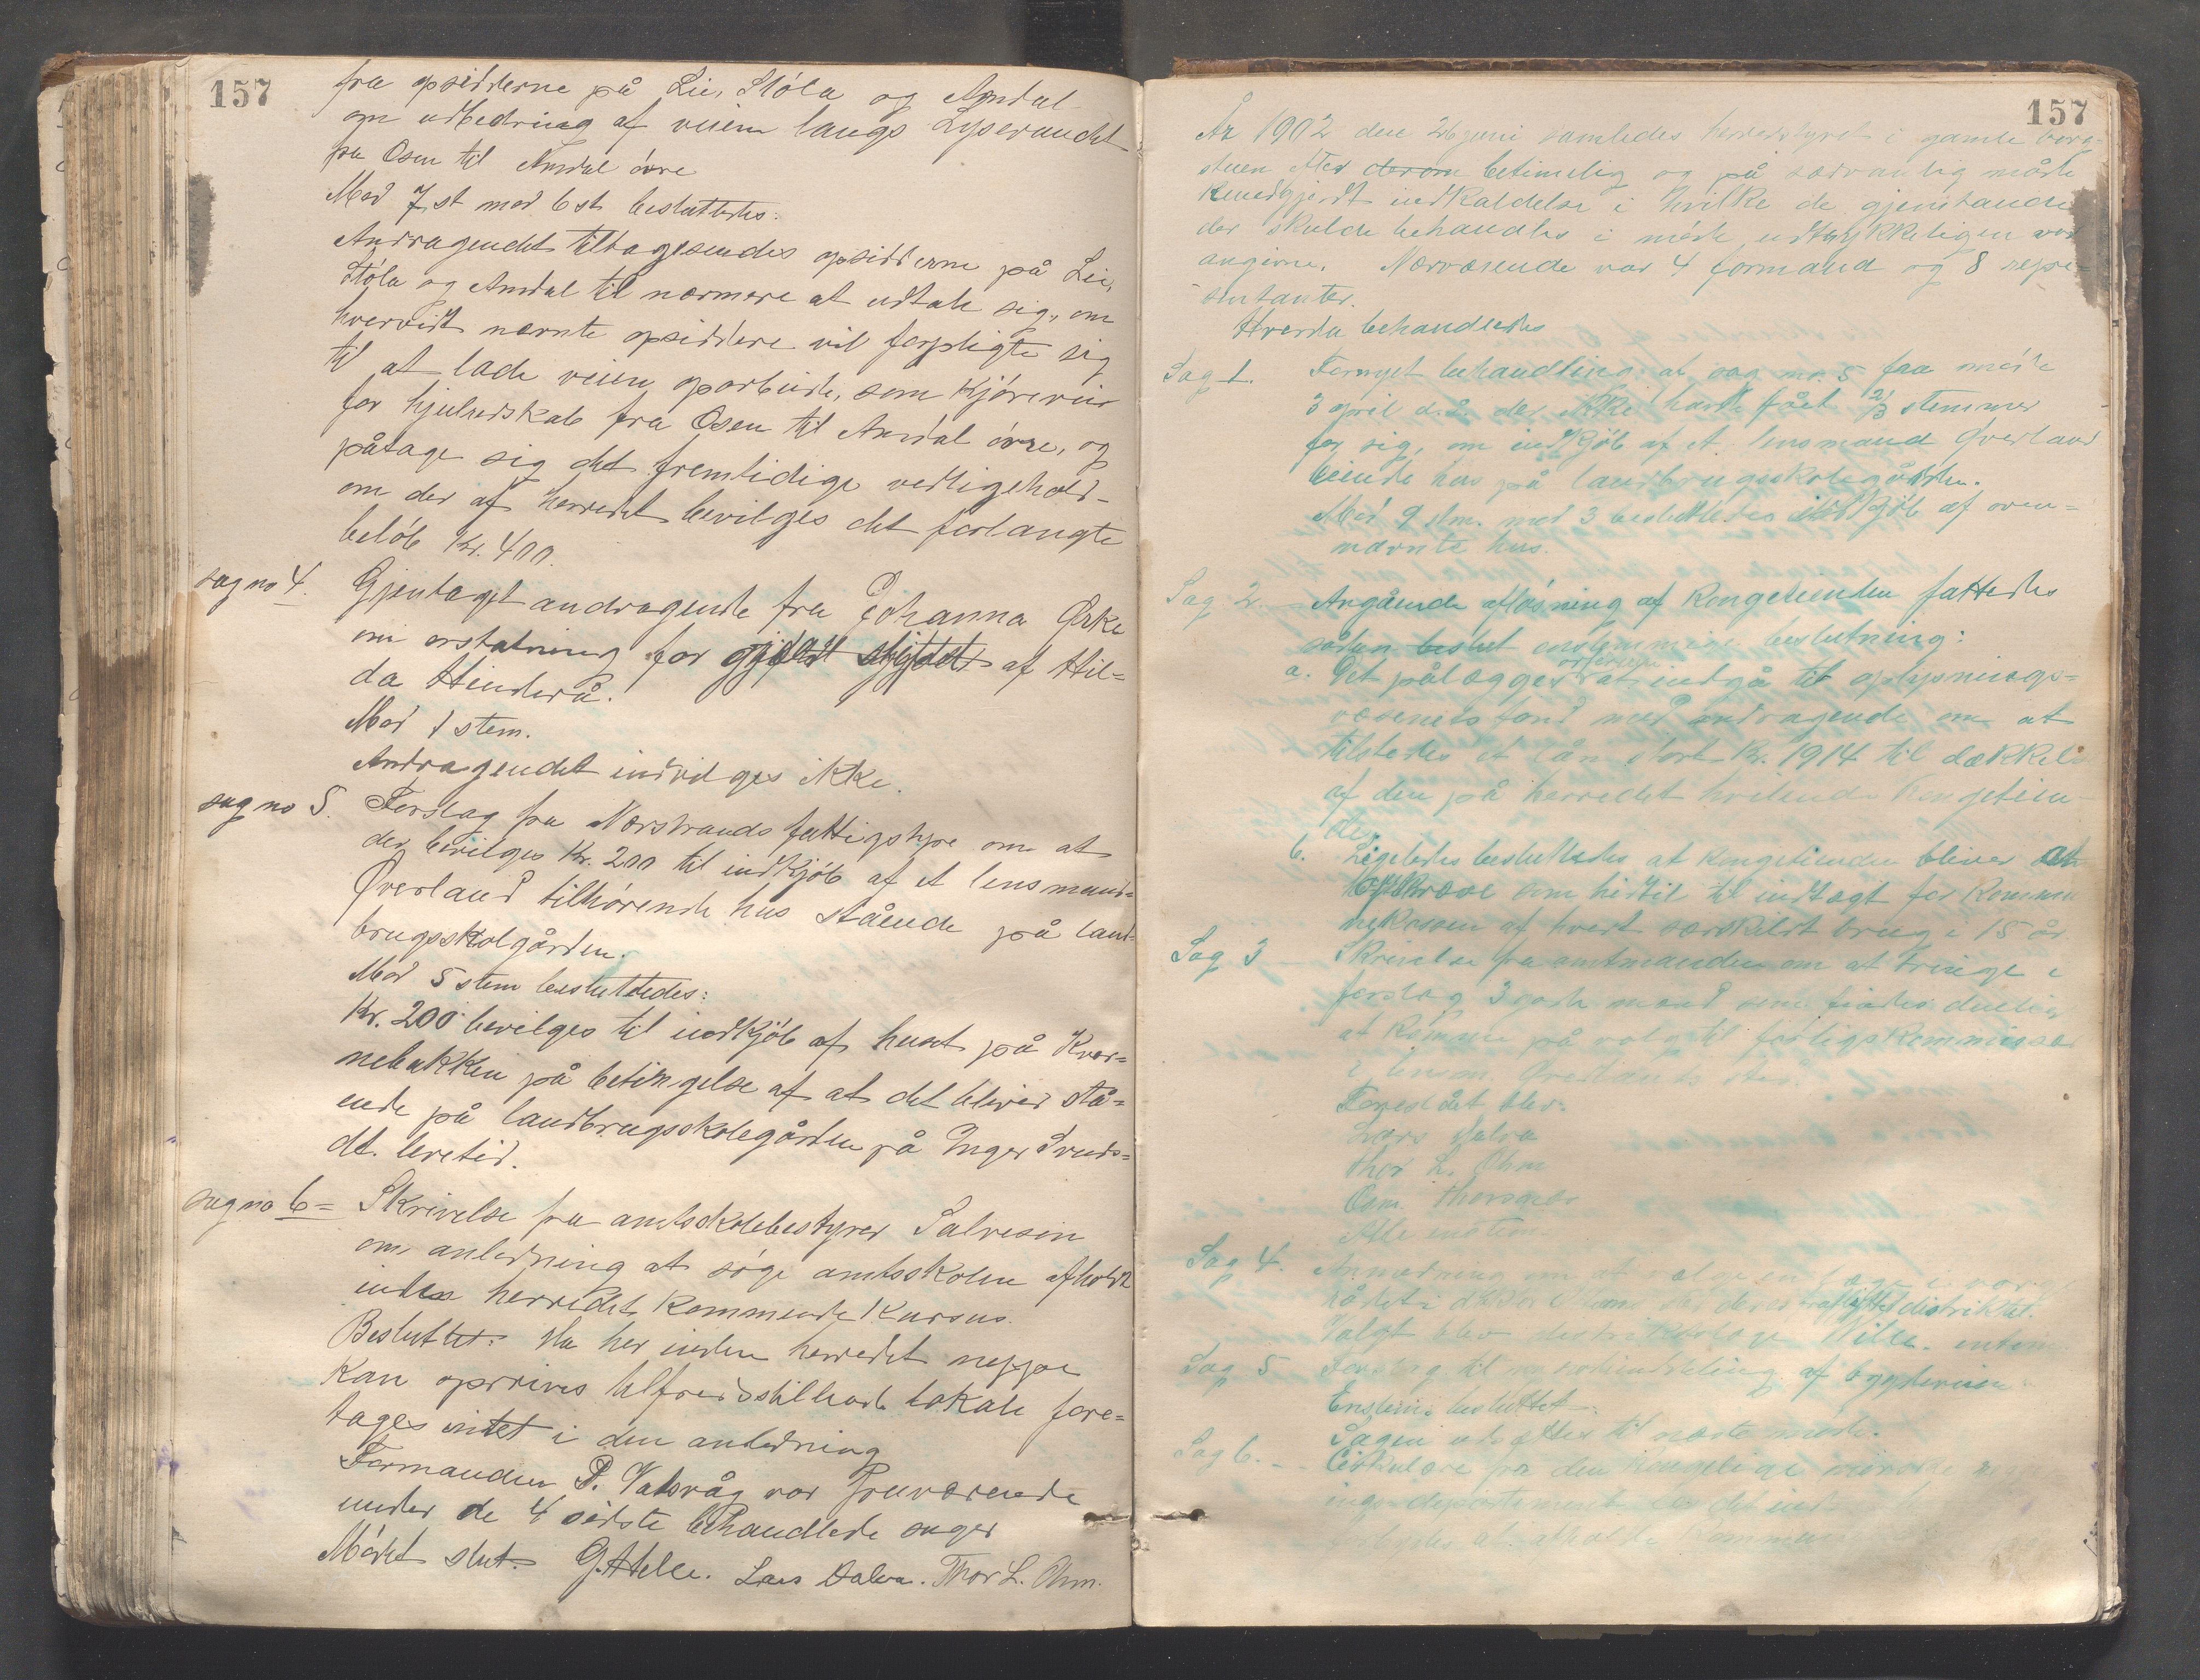 157
fra opsidderne på Lie, Stóla og Amdal
om udbedring af veien langs Lyservandet
fra Osen til Amdal óvre
Mod 7 st mod 6 st. besluttedes:
Andragendet tilbagesendes opsidderne på Lie,
Stóla og Amdal til nærmere at udtale sig, om
hvorvidt nævnte opsiddere vil forpligte sig
til at lade veien oparbeide, som kjórevei
for hjulredskab fra Osen til Amdal óvre, og
påtage sig det fremtidige vedligehold-
om der af herredet bevilges det forlangte
belób Kr. 400.
sag no 4. Gjentaget andragende fra Johanna Ørke
om erstatning for af Hil=
da Hinderå.
Mod 1 stem.
Andragendet indvilges ikke.
sag no 5. Forslag fra Nærstrands fattigstyre om at
der bevilges Kr. 200 til indkjób af et lensmand=
Øverland tilhórende hus stående på land=
brugsskolgården.
Mod 5 stem besluttedes:
Kr. 200 bevilges til indkjób af huset på Kver=
nebakken på betingelse af at det bliver stå=
ende på landbrugsskolegården på Inger Svends=
dt. levetid.
sag no 6= Skrivelse fra amtsskolebestyrer Salvesen
om anledning at sóge amtsskolen afholdt
inden herredet kommende kursus.
Besluttet: Da her inden herredet neppe
kan opdrives tilfredsstillende lokale fore=
tages intet i den anledning
Formanden P. Vatsvåg var fraværende
under de 4 sidste behandlede sager
Módet slut. G. Helle. Lars Dalva. Thor L. Ohm.
157
År 1902 den 26 juni samledes herredstyret i gamle borg-
stuen efter derom betimelig og på sædvanlig måde
kundgjordt indkaldelse i hvilke de gjenstande
der skulde behandles i móde udtrykkeligen var
angivne. Nærværende var 4 formænd og 8 repre-
sentanter.
Hvorda behandledes
Sag 1. Fornyet behandling af sag no. 5 fra móde
3 april d.å. der ikke havde fået 2/3 stemmer
for sig, om indkjób af et lensmand Øverland
eiende hus på landbrugsskolegården.
Mod 9 stm. mod 3 besluttedes indkjób af oven=
nævnte hus.
Sag 2. Angående aflósning af Kongetienden fattedes
sådan beslut enstemmige beslutning:
a. Det pålægges ordføreren at indgå til oplysnings=
væsenets fond med andragende om at
tilstedes et lån stort Kr. 1914 til dækkelse
af den på herredet hvilende Kongetien-
de.
b. Ligeledes besluttedes at kongetienden bliver at
opkræve som hidtil til indtægt for kommu
nekassen af hvert særskildt brug i 15 år.
Sag 3 Skrivelse fra amtmanden om at bringe i
forslag 3 gode mænd som findes duelig
at komme på valg til forligskommissær
i lensm. Øverlands sted.
Foreslået blev:
Lars Dalva
Thor L. Ohm
Osm. Thorsnes
Sag 4. Anmodning om at vælge
distriktet.
Valgt blev
Sag 5 Forslag til ny rodeinddeling af bygdeveien
Enstem. besluttet:
Sagen udsættes til næste móde.
Sag 6. Cirkulære fra den kongelige